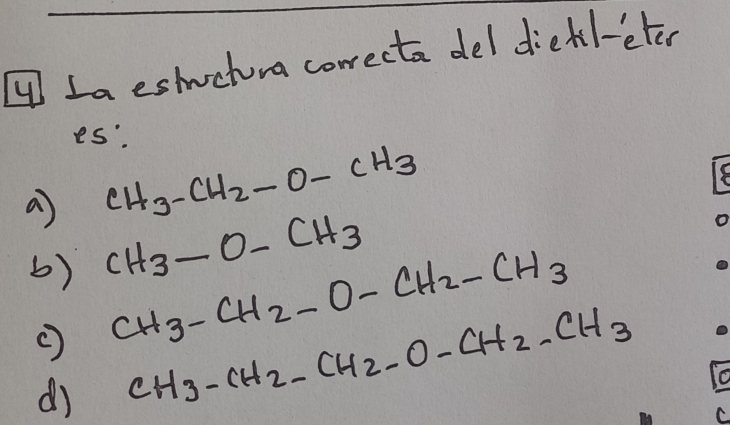 4 La estructura correcta del dietil-éter
es:
a) CH3-CH2-O-CH3
b) CH3-O-CH3
c) CH3-CH2-O-CH2-CH3
d) CH3-CH2-CH2-O-CH2-CH3